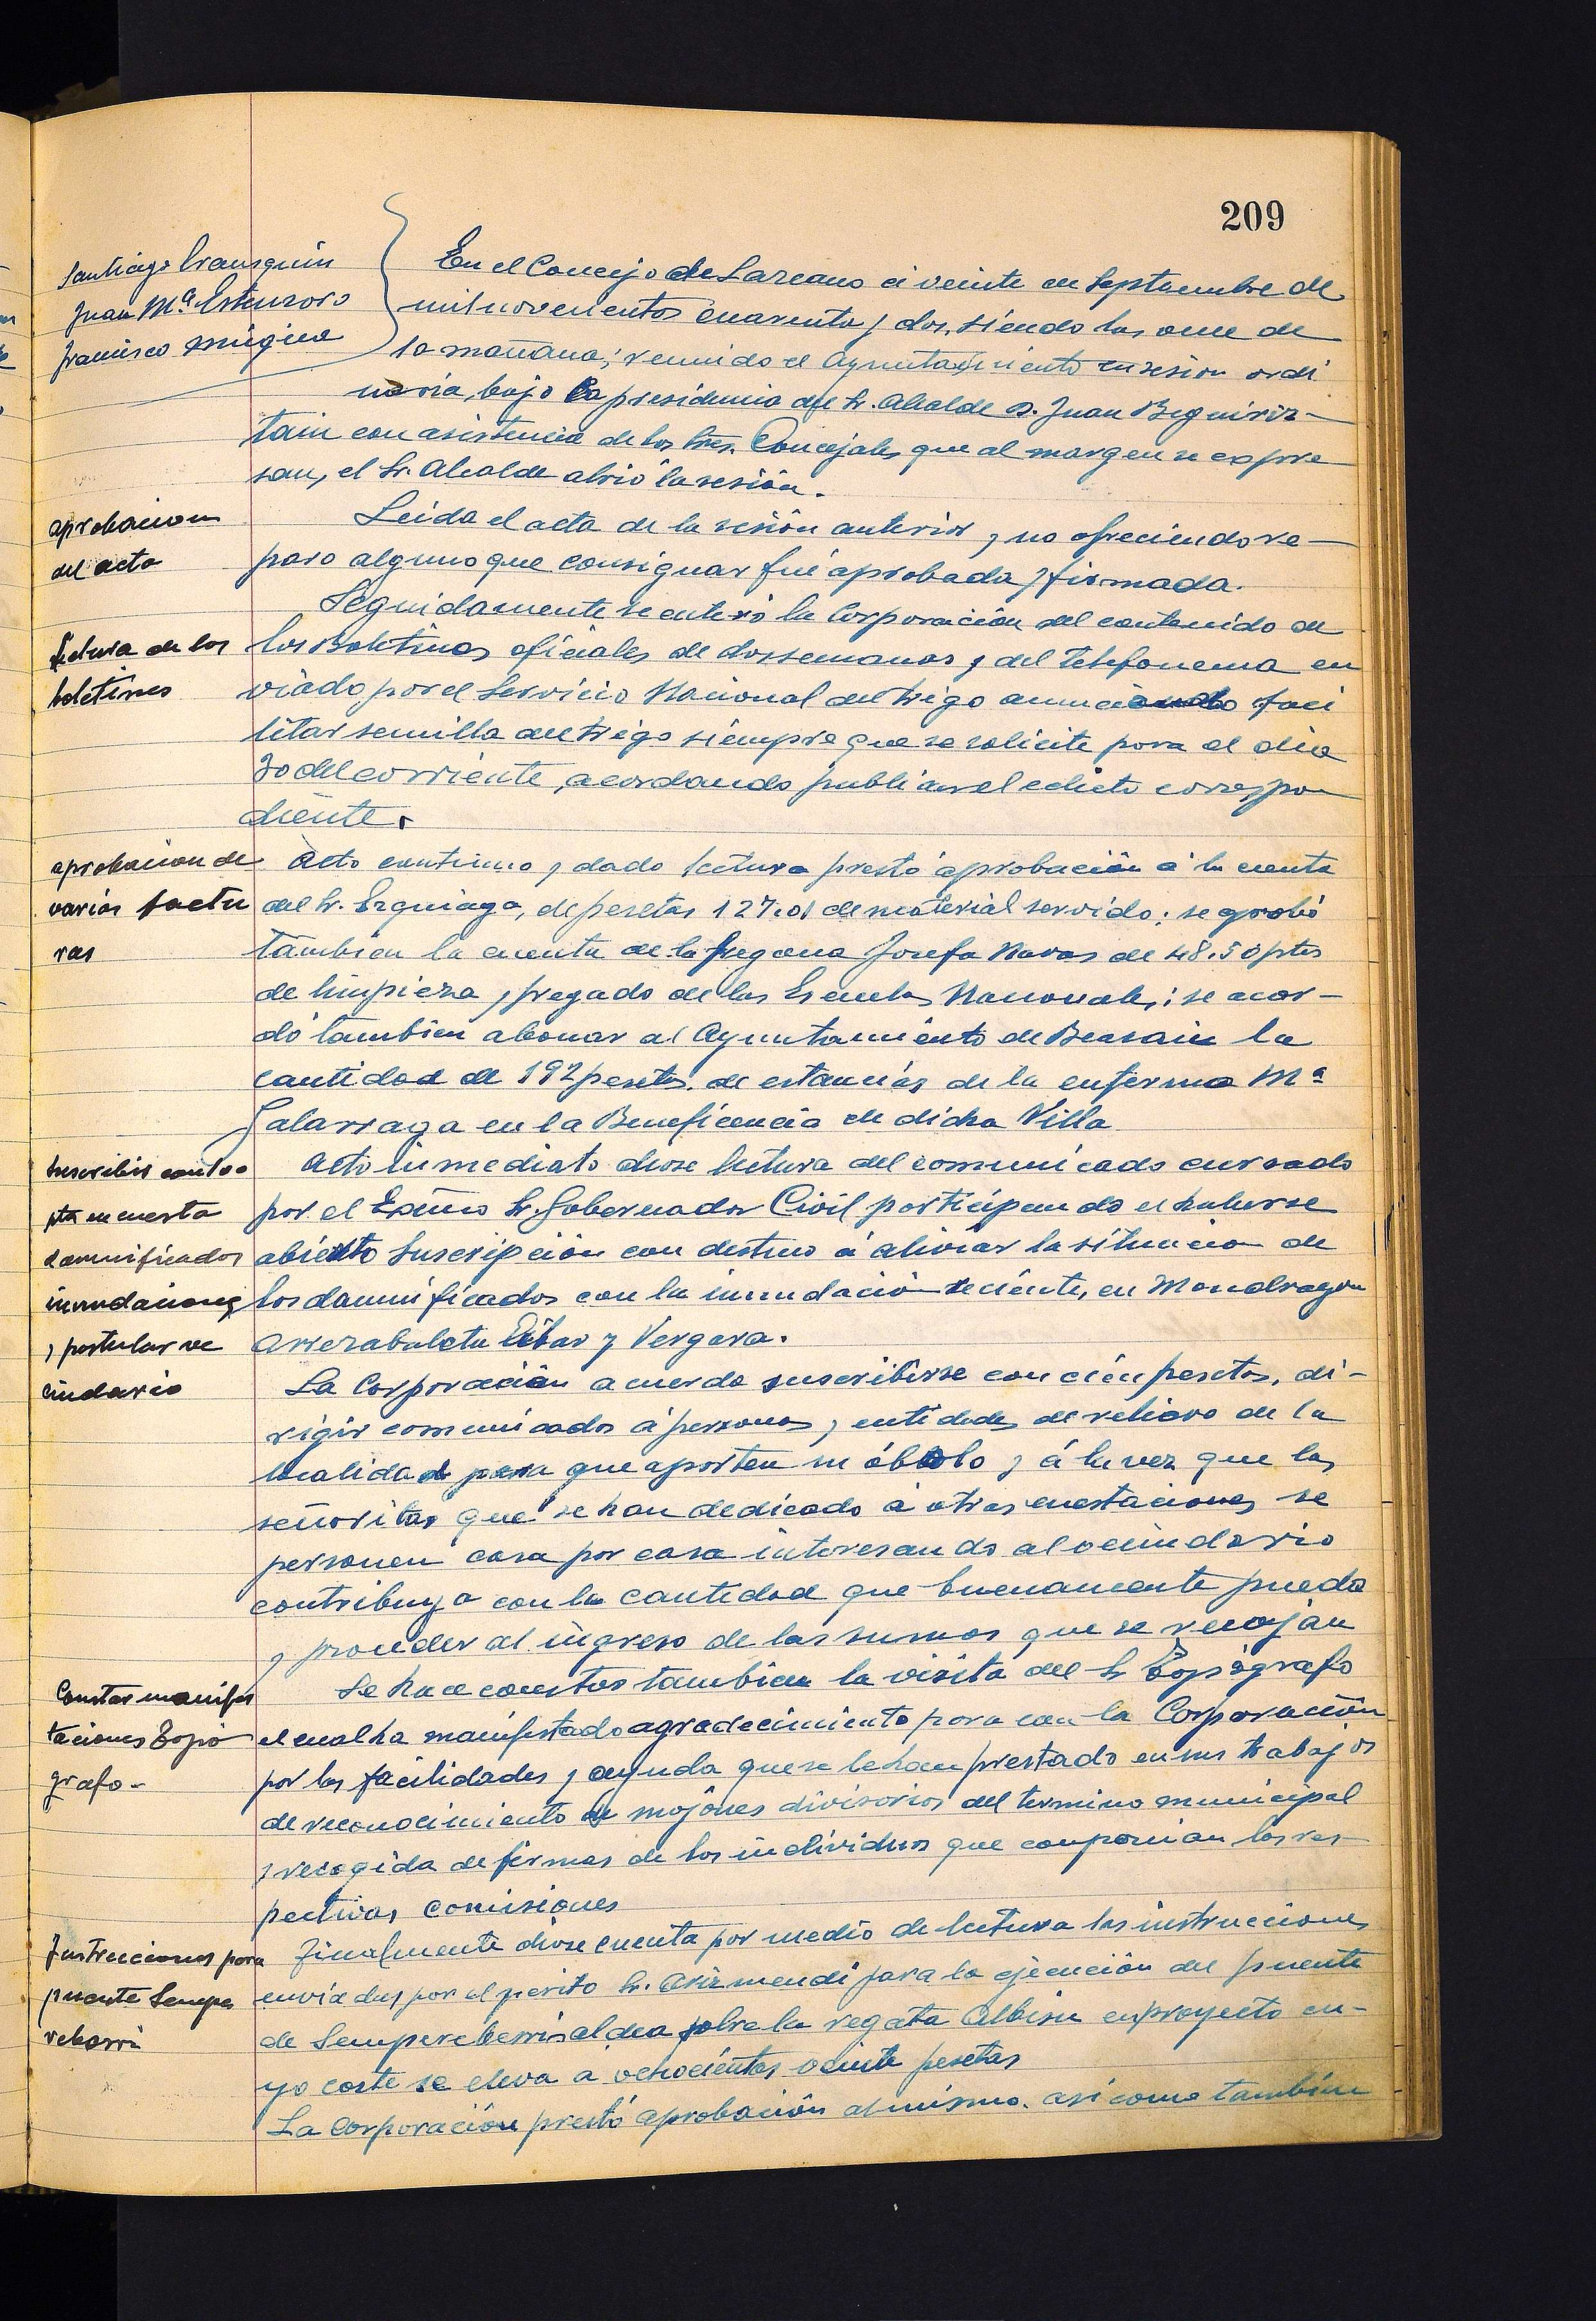 209
Santiago Iransquin
Juan Mª Estensoro
Francisco Mugica
En el Concejo de Lazcano a veinte en Septiembre de
mil novecientos cuarenta y dos, siendo las once de
la mañana; reunido el Ayuntamiento en sesion ordi
naria, bajo la presidencia del Sr. Alcalde D. Juan Beguiriz-
tain con asistencia de los tres. Concejales que al margen se expre
san, el Sr. Alcalde abrió la sesión.
aprobacion
del acta
Leida el acta de la sesión anterior y no ofreciendo re-
paro alguno que consignar fué aprobada y firmada.
Seguidamente se enteró la Corporación del contenido de
lectura de los
boletines
los Boletines oficiales de dos semanas y del telefonema en
viado por el Servicio Nacional del trigo anunciando faci
litar semilla del trigo siempre que se solicite para el dia
30 del corriente, acordando publicar el edicto correspon
diente.
aprobacion de
varias factu
ras
Acto continuo y dado lectura prestó aprobación á la cuenta
del Sr. Ezquiaga, de pesetas 127.01 de material servido; se aprobó
tambien la cuenta de la fregona Josefa Navas de 48.50 ptas
de limpieza y fregado de las Escuelas Nacionales; se acor-
dó tambien abonar al Ayuntamiento de Beasain la
cantidad de 192 pesetas. de estancias de la enferma Mª
Galarraga en la Beneficencia de dicha Villa
suscribir con 100
pts en cuesta
damnificados
inundaciones
y postular ve
cindario
Acto inmediato diose lectura del comunicado cursado
por el Exmo Sr. Gobernador Civil participando el haberse
abierto Suscripción con destino á aliviar la situacion de
los damnificados con la inundación reciente, en Mondragon
Arrezabaleta Eibar y Vergara.
La Corporación acuerda suscribirse con cien pesetas, di-
rigir comunicados á personas y entidades de relieve de la
localidad para que aporten su óbolo y á la vez que las
señoritas que se han dedicado á otras cuestaciones se
personen casa por casa interesando al vecindario
contribuya con la cantidad que buenamente pueda
y proceder al ingreso de las sumas que se recojan
Constar manifes
taciones Topo
grafo-
Se hace constar tambien la visita del Sr Topógrafo
el cual ha manifestado agradecimiento para con la Corporación
por las facilidades y ayuda que se le han prestado en sus trabajos
de reconocimiento de mojones divisorios del termino municipal
y recogida de firmas de los individuos que componian las res
pectivas comisiones
Instrucciones para
puente Sempe
reberri
Finalmente diose cuenta por medio de lectura las instrucciones
enviadas por el perito Sr. Arizmendi para la ejecución del puente
de Sempereberrialdea sobre la regata Albisu en proyecto cu-
yo coste se eleva a ochocientas veinte pesetas
La Corporación prestó aprobación al mismo. asi como tambien